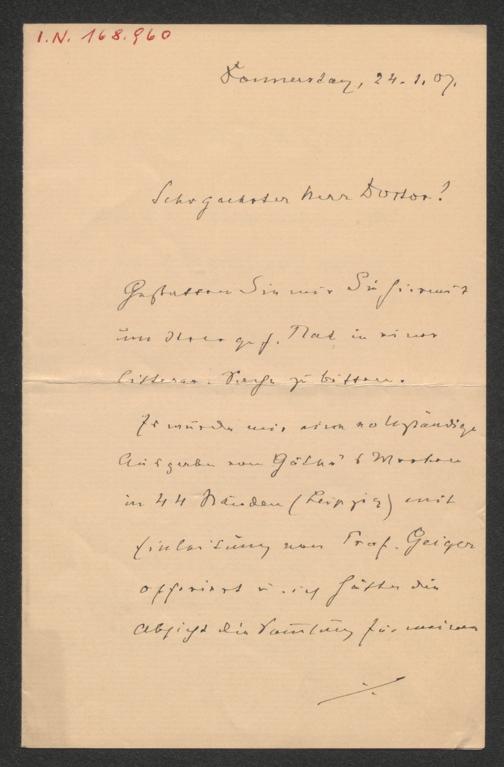 I.N. 168.960
Donnerstag, 24.1.07.
Sehr geehrter Herr Doctor!
Gestatten Sie mir Sie hiermit
um Ihren gef. Rat in einer
litterar. Sache zu bitten.
Es wurde mir eine vollständige
Ausgabe von Göthe's Werken
in 44 Bänden (Leipzig) mit
Einleitung von Prof. Geiger
offeriert u. ich hätte die
Absicht die Samlung für meinen
./.